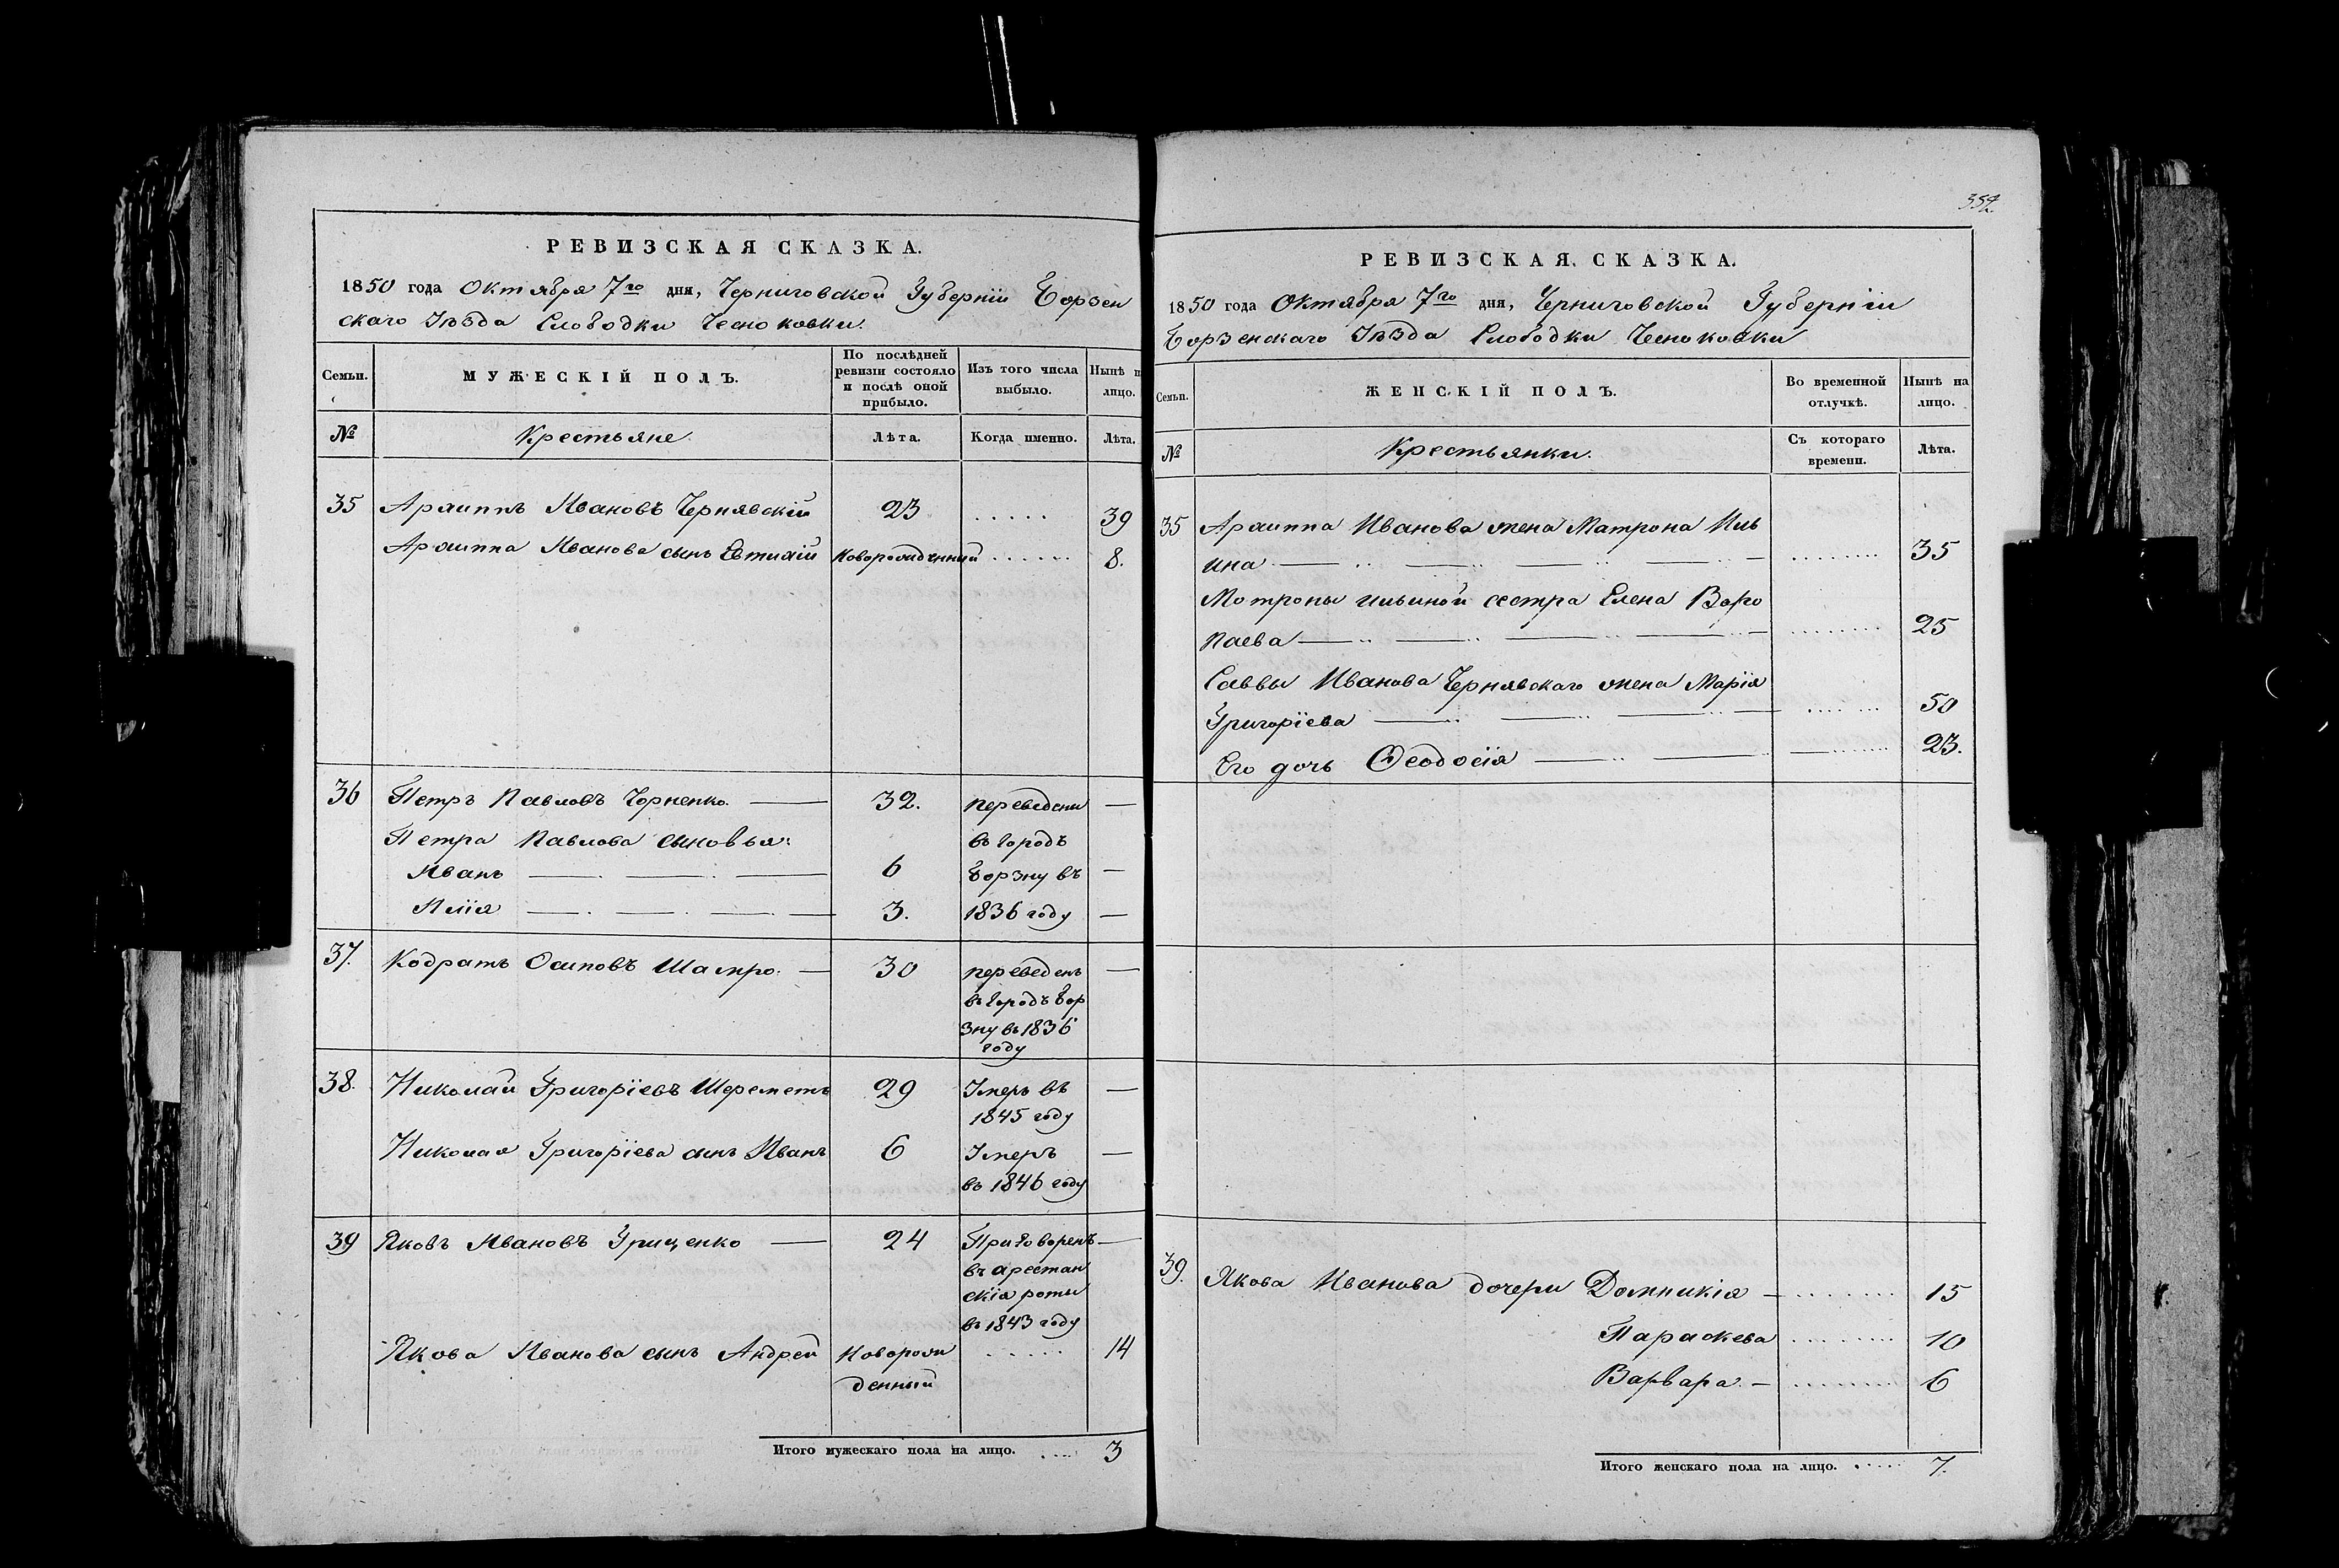 РЕВИЗСКАЯ СКАЗКА.
1850 года Октября 7го дня, Черниговской Губерніи Борзен
скаго Уѣзда Слободки Чесноковки.
Семьи.
МУЖЕСКІЙ ПОЛЪ.
По послѣдней ревизіи состояло и послѣ оной прибыло.
Изъ того числа выбыло.
Нынѣ н лицо.
№
Крестьяне
Лѣта.
Когда именно.
Лѣта.
35 Архиппъ Ивановъ Чернявскій 23 ..... 39
Архиппа Иванова сынъ Евтихій новорожденный ...... 8.
36 Петръ Павловъ Чорненко. — 32. переведены —
Петра Павлова сыновья: въ городъ
Иванъ — 6 Борзну въ —
Илія — 3. 1836 году —
37. Кодратъ Осиповъ Шапро. — 30 переведенъ —
въ городъ Бор
зну въ 1836
году
38. Николай Григоріевъ Шереметъ 29 Умеръ въ —
1845 году
Николая Григоріева сынъ Иванъ 6 Умеръ —
въ 1846 году
39 Яковъ Ивановъ Грищенко — 24 Приговоренъ —
въ арестан
скія роты
въ 1843 году
Якова Иванова сынъ Андрей новорож ..... 14
денный
Итого мужескаго пола на лицо. .... 3
РЕВИЗСКАЯ СКАЗКА.
1850 года Октября 7го дня, Черниговской Губерніи
Борзенскаго Уѣзда Слободки Чесноковки
Семьи.
ЖЕНСКІЙ ПОЛЪ.
Во временной отлучкѣ.
Нынѣ на лицо.
№
Крестьянки.
Съ котораго времени.
Лѣта.
35 Архиппа Иванова жена Матрона Иль
ина — ......... 35
Мотроны ильиной сестра Елена Варго
паева — ........ 25
Саввы Иванова Чернявскаго жена Марія
Григоріева — ....... 50
Его дочь Ѳеодосія — ........ 23.
39. Якова Иванова дочери Домникія — ........ 15
Параскева ......... 10
Варвара. — ......... 6
Итого женскаго пола на лицо. ..... 7.